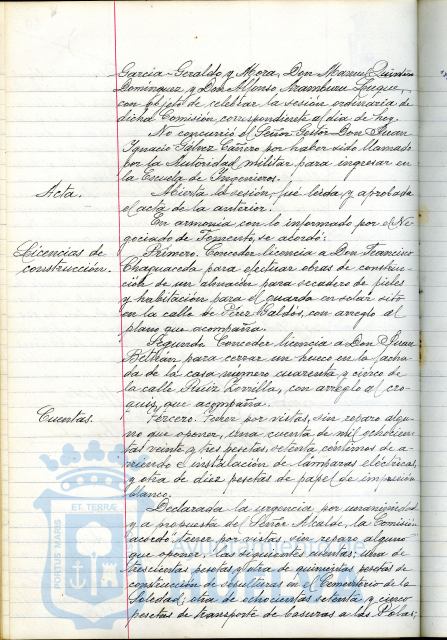 Garcia-Geraldo y Mora, Don Manuel Quintero
Dominguez y Don Alfonso Aramburu Luque,
con objeto de celebrar la sesión ordinaria de
dicha Comisión, correspondiente al dia de hoy.
No concurrió el Señor Gestor Don Juan
Ignacio Gálvez Cañero por haber sido llamado
por la Autoridad militar para ingresar en
la Escuela de Ingenieros.
Acta.
Abierta la sesión, fué leida y aprobada
el acta de la anterior.
En armonia con lo informado por el Ne-
gociado de Fomento, se acordó:
Licencias de
construcción.
Primero. Conceder licencia a Don Francisco
Chaguaceda para efectuar obras de construc-
ción de un almacén para secadero de pieles
y habitación para el guarda en solar sito
en la calle de Pérez Galdós, con arreglo al
plano que acompaña.
Segundo. Conceder licencia a Don Juan
Beltrán para cerrar un hueco en la facha-
da de la casa número cuarenta y cinco de
la calle Ruiz Zorrilla, con arreglo al cro-
quis que acompaña.
Cuentas.
Tercero. Tener por vistas, sin reparo algu-
no que oponer, una cuenta de mil ochocien-
tas veinte y tres pesetas, setenta centimos de a-
rriendo e instalación de lámparas eléctricas,
y otra de diez pesetas de papel de impresión
blanco.
Declarada la urgencia por unanimidad
y a propuesta del Señor Alcalde, la Comisión
acordó tener por vistas, sin reparo alguno
que oponer las siguientes cuentas; una de
trescientas pesetas y otra de quinientas pesetas de
construcción de sepulturas en el Cementerio de la
Soledad; otra de ochocientas setenta y cinco
pesetas de transporte de basuras a las Polas;
PORTUS MARIS ET TERRÆ